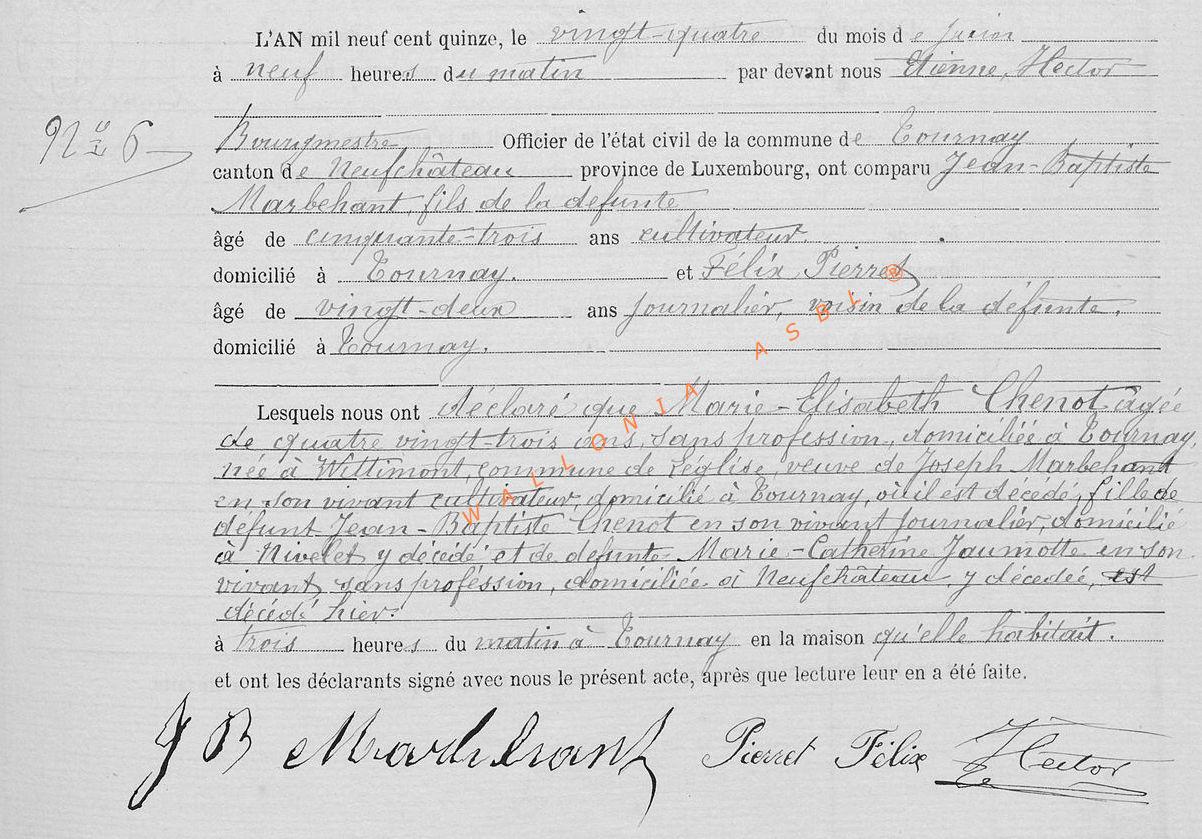 L'AN mil neuf cent quinze, le vingt-quatre du mois de Juin
à neuf heures du matin par devant nous Etienne, Hector
Nº 6
Bourgmestre, Officier de l'état civil de la commune de Tournay
canton de Neufchâteau province de Luxembourg, ont comparu Jean-Baptiste
Marbehant, fils de la defunte
âgé de cinquante-trois ans cultivateur.
domicilié à Tournay. et Félix Pierret
âgé de vingt-deux ans journalier, voisin de la défunte,
domicilié à Tournay.
Lesquels nous ont déclaré que Marie-Elisabeth Chenot âgée
de quatre vingt-trois ans, sans profession, domiciliée à Tournay
née à Wittimont, commune de Léglise, veuve de Joseph Marbehant
en son vivant cultivateur, domicilié à Tournay, où il est décédé, fille de
défunt Jean-Baptiste Chenot en son vivant journalier, domicilié
à Nivelet y décédé et de defunte Marie-Catherine Jaumotte en son
vivant, sans proféssion, domiciliée à Neufchâteau y décedée, est
décédé hier.
à trois heures du matin à Tournay en la maison qu'elle habitait.
et ont les déclarants signé avec nous le présent acte, après que lecture leur en a été faite.
J B Marbehant Pierret Félix Hector
WALLONIA ASBL @